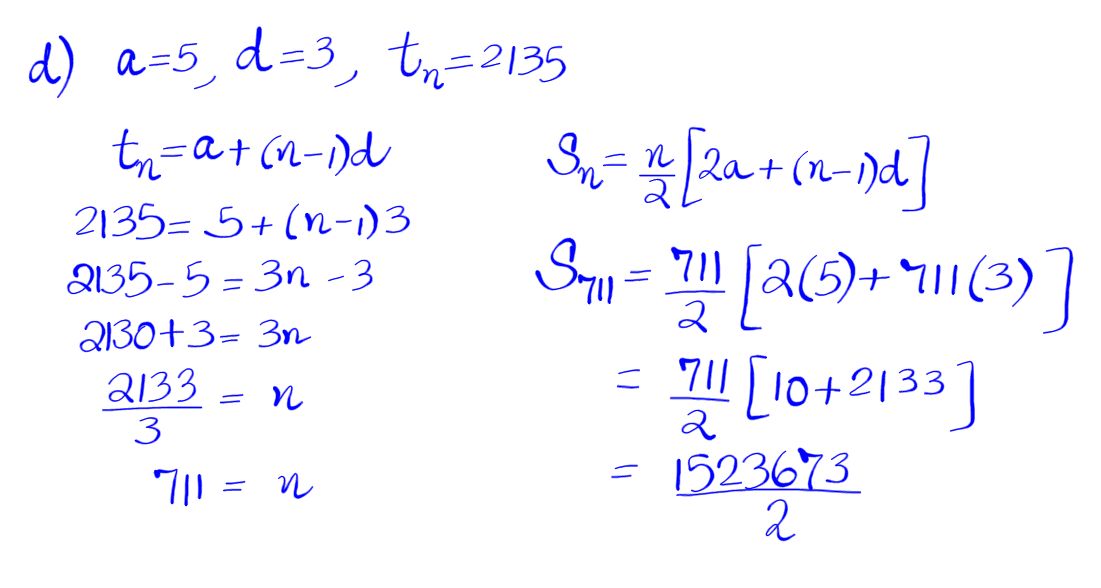 d) a=5, d=3, tₙ=2135
tₙ=a+(n-1)d
2135=5+(n-1)3
2135-5=3n-3
2130+3=3n
2133/3=n
711=n
Sₙ=n/2[2a+(n-1)d]
S₇₁₁=711/2[2(5)+711(3)]
=711/2[10+2133]
=1523673/2